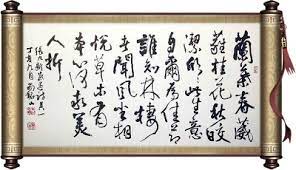 蘭葉春葳
蕤桂花秋皎
潔欣欣此生意
自爾為佳節
誰知林棲
者聞風坐相
悅草木有
本心何求美
人折
張九齡感遇詩其一
丁亥九月